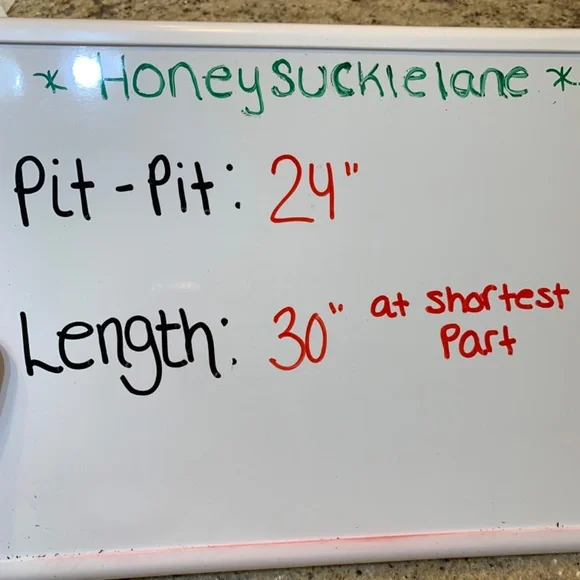 * Honeysucklelane *
Pit - Pit: 24"
Length: 30" at shortest
Part